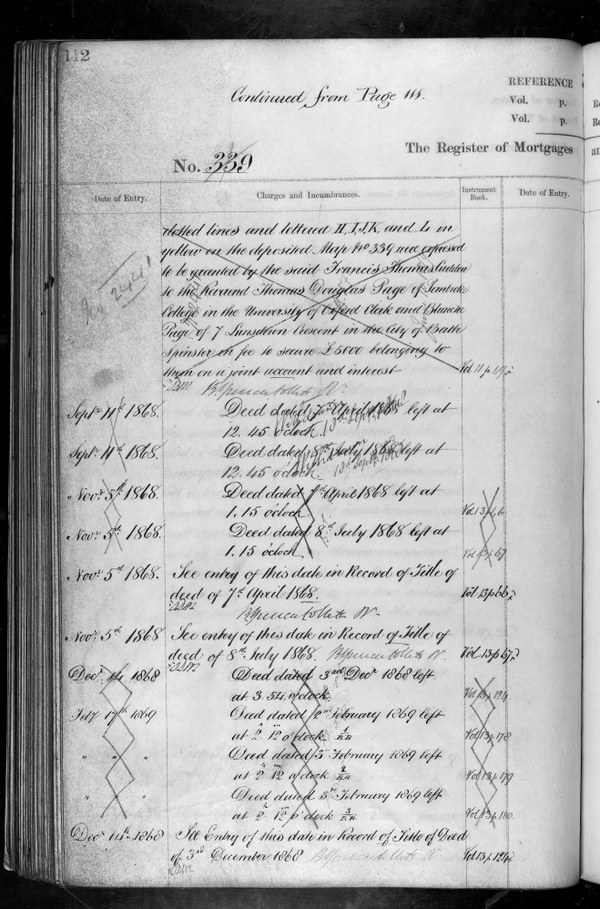 112
REFERENCE
Continued from Page 111.
Vol. p.
Vol. p.
The Register of Mortgages
No. 339
Date of Entry. Charges and Incumbrances. Instrument Book. Date of Entry.
dotted lines and lettered H, I, J, K, and L in
yellow on the deposited Map No 339 were expressed
to be granted by the said Francis Thomas
to the Reverend Thomas Douglas Page of
College in the University of Oxford Clerk and Blanche
Page of 7 Lansdown Crescent in the City of Bath
Spinster in fee to secure £5000 belonging to
them on a joint account and interest Vol. 11 p.
Septr. 11th 1868. Deed dated 7th April 1868 left at
12. 45 o'clock.
Septr. 11th 1868. Deed dated 8th July 1868 left at
12. 45 o'clock.
Novr. 5th 1868. Deed dated 7th April 1868 left at
1. 15 o'clock Vol. 13 p. 66
Novr. 5th 1868. Deed dated 8th July 1868 left at
1. 15 o'clock Vol. 13 p. 67
Novr. 5th 1868. See entry of this date in Record of Title of
deed of 7th April 1868. Vol. 13 p. 66
Novr. 5th 1868 See entry of this date in Record of Title of
deed of 8th July 1868. Vol. 13 p. 67
Decr. 14 1868 Deed dated 3rd Decr 1868 left
at 3. 54 o'clock Vol. 13 p. 124
Feby 17th 1869 Deed dated February 1869 left
at 2 12 o'clock Vol. 13 p. 178
" " Deed dated 5 February 1869 left
at 2 12 o'clock Vol. 13 p. 179
" " Deed dated 5th February 1869 left
at 2 12 o'clock Vol. 13 p. 180.
Decr 14th 1868 See Entry of this date in Record of Title of Deed
of 3rd December 1868 Vol. 13 p. 124